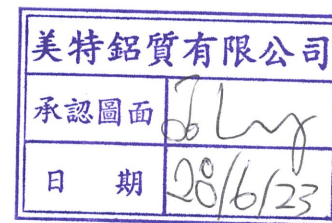 美特鋁質有限公司
承認圖面
日期 28/6/23